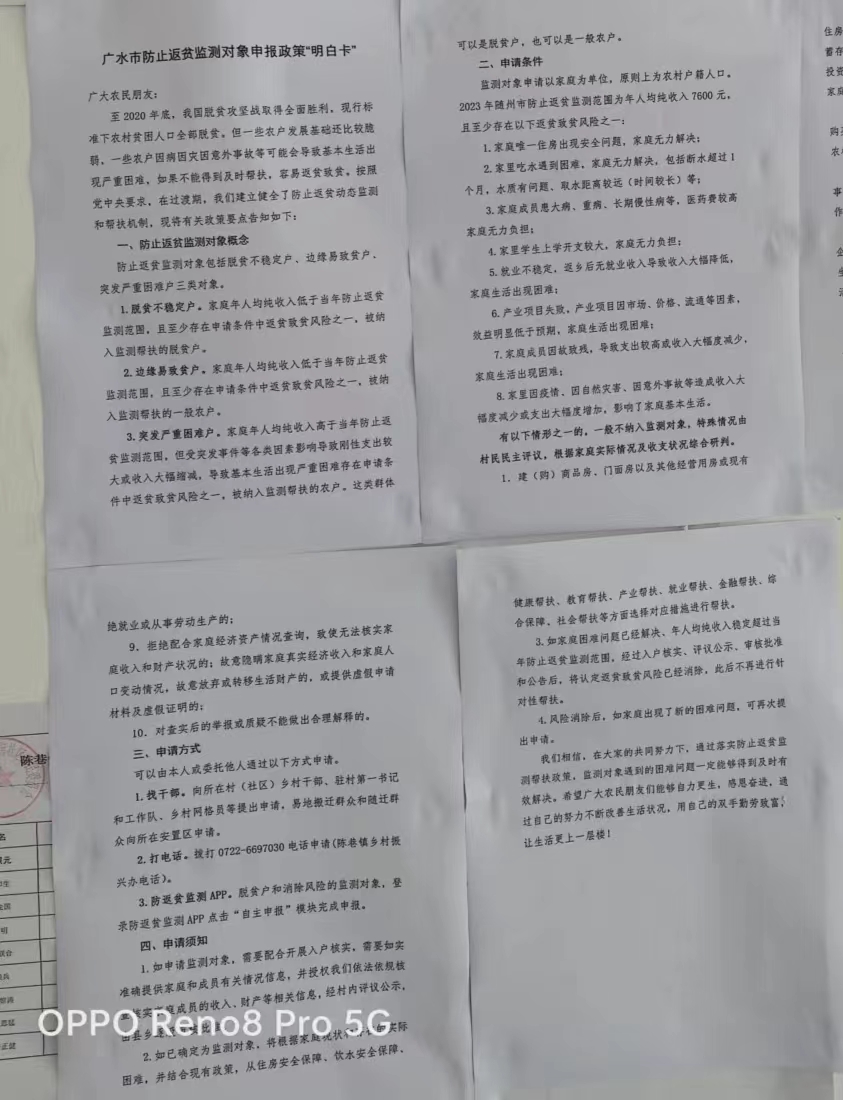 广水市防止返贫监测对象申报政策“明白卡”
广大农民朋友：
至2020年底，我国脱贫攻坚战取得全面胜利，现行标
准下农村贫困人口全部脱贫。但一些农户发展基础还比较脆
弱，一些农户因病因灾因意外事故等可能会导致基本生活出
现严重困难，如果不能得到及时帮扶，容易返贫致贫。按照
党中央要求，在过渡期，我们建立健全了防止返贫动态监测
和帮扶机制，现将有关政策要点告知如下：
一、防止返贫监测对象概念
防止返贫监测对象包括脱贫不稳定户、边缘易致贫户、
突发严重困难户三类对象。
1.脱贫不稳定户。家庭年人均纯收入低于当年防止返贫
监测范围，且至少存在申请条件中返贫致贫风险之一，被纳
入监测帮扶的脱贫户。
2.边缘易致贫户。家庭年人均纯收入低于当年防止返贫
监测范围，且至少存在申请条件中返贫致贫风险之一，被纳
入监测帮扶的一般农户。
3.突发严重困难户。家庭年人均纯收入高于当年防止返
贫监测范围，但受突发事件等各类因素影响导致刚性支出较
大或收入大幅缩减，导致基本生活出现严重困难存在申请条
件中返贫致贫风险之一，被纳入监测帮扶的农户。这类群体
可以是脱贫户，也可以是一般农户。
二、申请条件
监测对象申请以家庭为单位，原则上为农村户籍人口。
2023年随州市防止返贫监测范围为年人均纯收入7600元，
且至少存在以下返贫致贫风险之一：
1.家庭唯一住房出现安全问题，家庭无力解决；
2.家里吃水遇到困难，家庭无力解决，包括断水超过1
个月，水质有问题、取水距离较远（时间较长）等；
3.家庭成员患大病、重病、长期慢性病等，医药费较高
家庭无力负担；
4.家里学生上学开支较大，家庭无力负担；
5.就业不稳定，返乡后无就业收入导致收入大幅降低，
家庭生活出现困难；
6.产业项目失败，产业项目因市场、价格、流通等因素，
效益明显低于预期，家庭生活出现困难；
7.家庭成员因故致残，导致支出较高或收入大幅度减少，
家庭生活出现困难；
8.家里因疫情、因自然灾害、因意外事故等造成收入大
幅度减少或支出大幅度增加，影响了家庭基本生活。
有以下情形之一的，一般不纳入监测对象，特殊情况由
村民民主评议，根据家庭实际情况及收支状况综合研判。
1．建（购）商品房、门面房以及其他经营用房或现有
住房
蓄存
投资
家庭
购买
农
事
作
绝就业或从事劳动生产的；
9．拒绝配合家庭经济资产情况查询，致使无法核实家
庭收入和财产状况的；故意隐瞒家庭真实经济收入和家庭人
口变动情况，故意放弃或转移生活财产的，或提供虚假申请
材料及虚假证明的；
10．对查实后的举报或质疑不能做出合理解释的。
三、申请方式
可以由本人或委托他人通过以下方式申请。
1.找干部。向所在村（社区）乡村干部、驻村第一书记
和工作队、乡村网格员等提出申请，易地搬迁群众和随迁群
众向所在安置区申请。
2.打电话。拨打0722-6697030电话申请(陈巷镇乡村振
兴办电话)。
3.防返贫监测APP。脱贫户和消除风险的监测对象，登
录防返贫监测APP点击“自主申报”模块完成申报。
四、申请须知
1.如申请监测对象，需要配合开展入户核实，需要如实
准确提供家庭和成员有关情况信息，并授权我们依法依规核
家庭成员的收入、财产等相关信息，经村内评议公示，
2.如已确定为监测对象，将根据家庭现状和存在的实际
困难，并结合现有政策，从住房安全保障、饮水安全保障、
健康帮扶、教育帮扶、产业帮扶、就业帮扶、金融帮扶、综
合保障、社会帮扶等方面选择对应措施进行帮扶。
3.如家庭困难问题已经解决、年人均纯收入稳定超过当
年防止返贫监测范围，经过入户核实、评议公示、审核批准
和公告后，将认定返贫致贫风险已经消除，此后不再进行针
对性帮扶。
4.风险消除后，如家庭出现了新的困难问题，可再次提
出申请。
我们相信，在大家的共同努力下，通过落实防止返贫监
测帮扶政策，监测对象遇到的困难问题一定能够得到及时有
效解决。希望广大农民朋友们能够自力更生，感恩奋进，通
过自己的努力不断改善生活状况，用自己的双手勤劳致富，
让生活更上一层楼！
陈巷
名
OPPO Reno8 Pro 5G